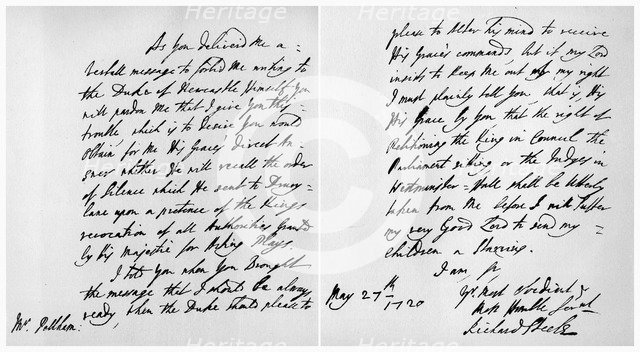 As you delivered me a
verball message to forbid me writing to
the Duke of Newcastle Himself you
will pardon me that I give you this
trouble which is to desire you would
obtain for me His Graces direct An=
swer whether He will recall the order
of Silence which He sent to Drury=
lane upon a pretence of the Kings
revocation of all Authorities Granted
by his Majestie for Acting Plays.
I told you when you Brought
the message that I should be always
ready when the Duke should please to
Mr. Pelham:
please to alter his mind to receive
His Grace's commands, but if my Lord
insists to keep me out of my right
I must plainly tell you, that is, His
His Grace by you that the right of
Petitioning the King in Council the
Parliament sitting or the Judges in
Westminster-Hall shall be utterly
taken from me before I will suffer
my very Good Lord to send my
children a Starving.
I am Sr
May 27th
1720
Yr. most obedient
most Humble Servnt
Richard Steele
Heritage
Heritage